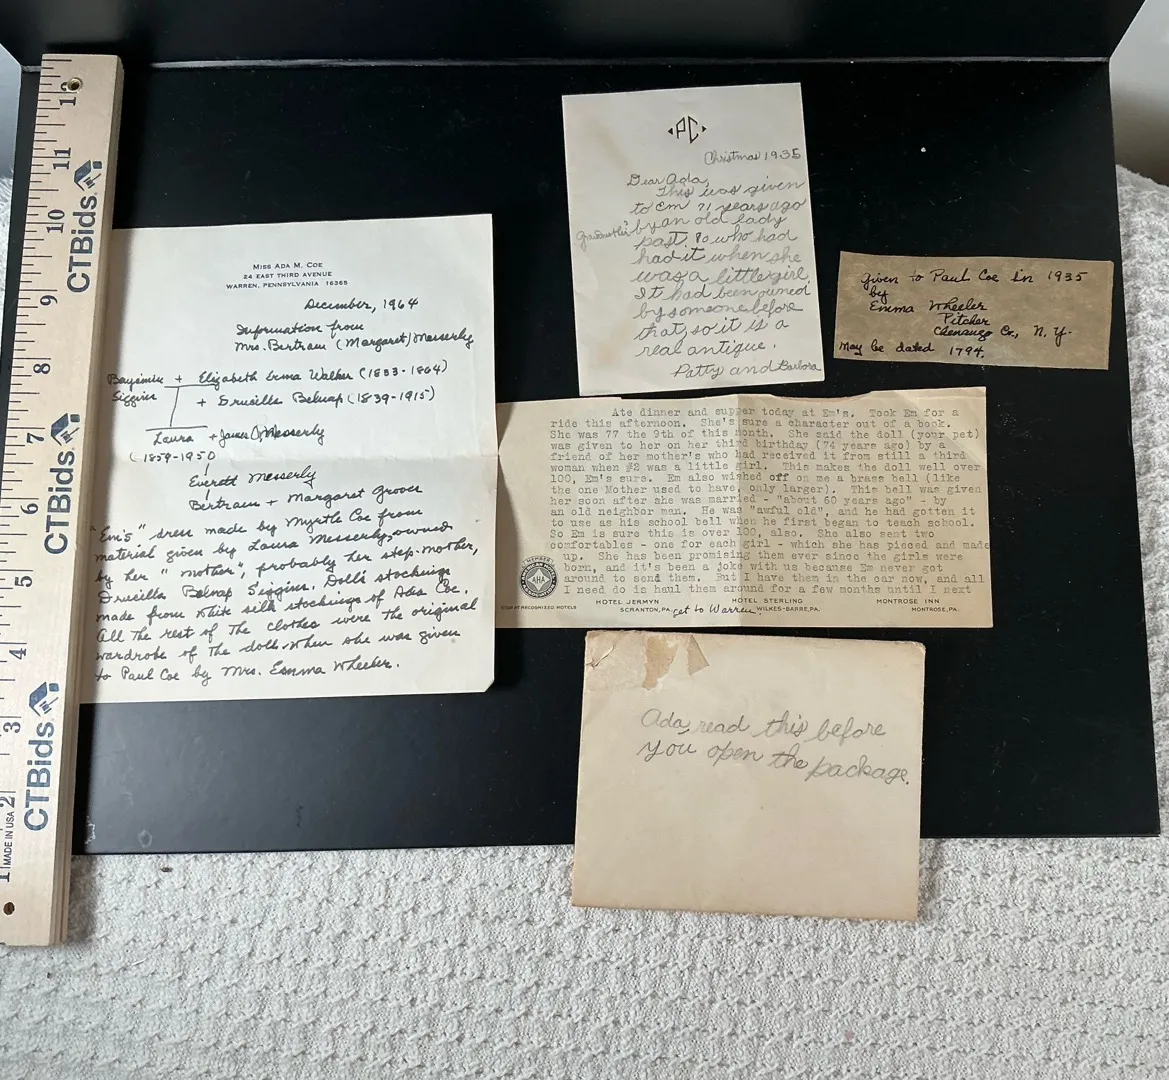 MISS ADA M. COE
24 EAST THIRD AVENUE
WARREN, PENNSYLVANIA 16365
December, 1964
Information from
Mrs. Bertram (Margaret) Messerly
Benjamin + Elizabeth Erma Walker (1833-1864)
Siggins
+ Drusilla Belnap (1839-1915)
Laura + James Messerly
(1859-1950
Everett Messerly
Bertram + Margaret Grooves
"Em's" dress made by Myrtle Coe from
material given by Laura Messerly, owned
by her "mother", probably her step-mother,
Drusilla Belnap Siggins. Doll's stockings
made from white silk stockings of Ada Coe.
All the rest of the clothes were the original
wardrobe of the doll when she was given
to Paul Coe by Mrs. Emma Wheeler.
PC
Christmas 1935
Dear Ada,
This was given
to Em 71 years ago
by an old lady
Grandmother's
past 80 who had
had it when she
was a little girl.
It had been owned
by someone before
that, so it is a
real antique.
Patty and Barbara
Given to Paul Coe in 1935
by
Emma Wheeler
Pitcher
Chenango Co., N.Y.
May be dated 1794.
Ate dinner and supper today at Em's. Took Em for a
ride this afternoon. She's sure a character out of a book.
She was 77 the 9th of this month. She said the doll (your pet)
was given to her on her third birthday (74 years ago) by a
friend of her mother's who had received it from still a third
woman when #2 was a little girl. This makes the doll well over
100, Em's sure. Em also wished off on me a brass bell (like
the one Mother used to have, only larger). This bell was given
her soon after she was married - "about 60 years ago" - by
an old neighbor man. He was "awful old", and he had gotten it
to use as his school bell when he first began to teach school.
So Em is sure this is over 100, also. She also sent two
comfortables - one for each girl - which she has pieced and made
up. She has been promising them ever since the girls were
born, and it's been a joke with us because Em never got
around to send them. But I have them in the car now, and all
I need do is haul them around for a few months until I next
get to Warren.
AHA
STOP AT RECOGNIZED HOTELS
HOTEL JERMYN
SCRANTON, PA.
HOTEL STERLING
WILKES-BARRE, PA.
MONTROSE INN
MONTROSE, PA.
Ada, read this before
you open the package.
CTBids
CTBids
CTBids
MADE IN USA
1
2
3
4
5
6
7
8
9
10
11
12